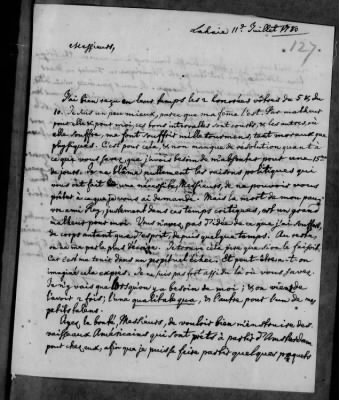 Lahaie 11e. Juillet 1780
127.
Messieurs,
J'ai bien reçu en leurs temps les 2 honorées vôtres du 5 & du
10. Je suis un peu mieux, parce que ma femme l'est. Par malheur
pour elle & pour moi, ses bons intervalles sont courts; & les autres, où
elle souffre, me font souffrir mille tourmens, tant moraux que
physiques. C'est pour cela, & non manque de résolution quant à
ce que vous savez, que j'avois besoin de m'absenter pour une 15ne
de jours. Je ne blâme nullement les raisons politiques qui
vous ont fait une nécessité, Messieurs, de ne pouvoir vous
prêter à ce que je vous ai demandé. Mais la mort de mon pauvre
ami Rey, justement dans ces temps critiques, est un grand
malheur pour moi. Vous n'avez pas d'idée de ce que j'ai souffert,
de corps autant que d'esprit, depuis quelque temps. Au reste,
on ne me parle plus
car c'est une toise dans un perpétuel échec. Et peut-être m'ont-on
imaginé cela exprès. Je ne puis pas être assidu là où vous savez.
Je n'y vais que lorsqu'on y a besoin de moi; & on vient de
l'avoir 2 fois; l'une & l'autre, pour l'un de nos
petits
Ayez la bonté, Messieurs, de vouloir bien m'instruire des
vaisseaux Américains qui sont prêts à partir d'Amsterdam
pour chez eux, afin que je puisse faire partir quelques paquets